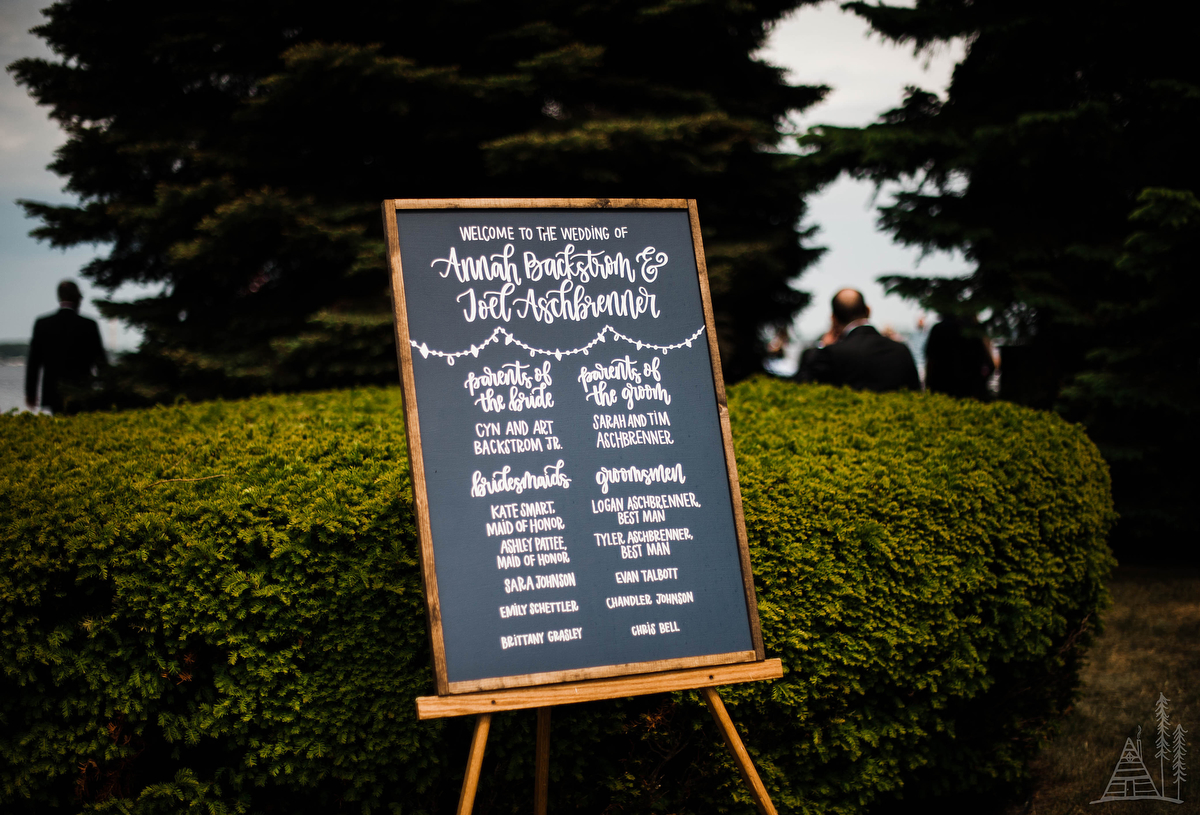 WELCOME TO THE WEDDING OF
Annah Backstrom &
Joel Aschbrenner
parents of
the bride
CYN AND ART
BACKSTROM JR.
parents of
the groom
SARAH AND TIM
ASCHBRENNER
bridesmaids
KATE SMART,
MAID OF HONOR
ASHLEY PATTEE,
MAID OF HONOR
SARA JOHNSON
EMILY SCHETTLER
BRITTANY GRASLEY
groomsmen
LOGAN ASCHBRENNER,
BEST MAN
TYLER ASCHBRENNER,
BEST MAN
EVAN TALBOTT
CHANDLER JOHNSON
CHRIS BELL